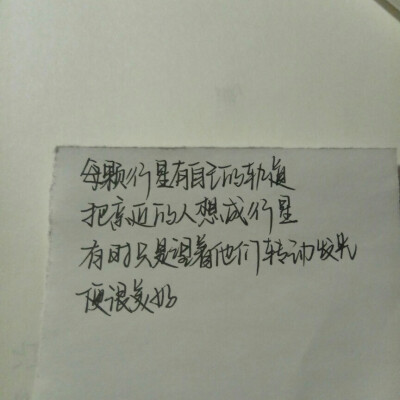 每颗行星有自己的轨道
把亲近的人想成行星
有时只是望着他们转动发光
便很美好